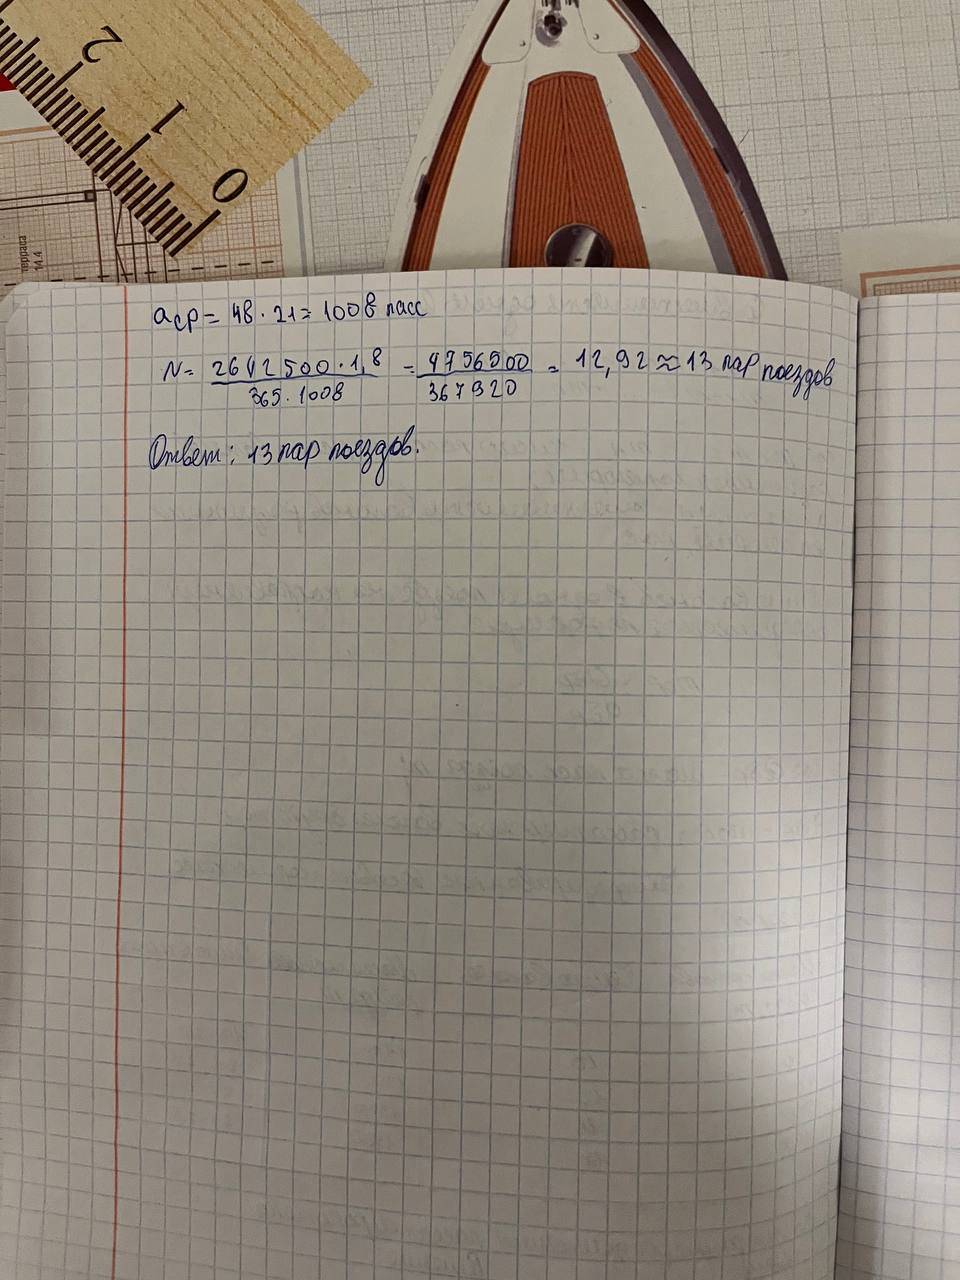 2
1
0
14.4
aср = 48 · 21 = 1008 пасс
N = 2642500 · 1,8 / 365 · 1008 = 4756500 / 367920 = 12,92 ≈ 13 пар поездов
Ответ: 13 пар поездов.